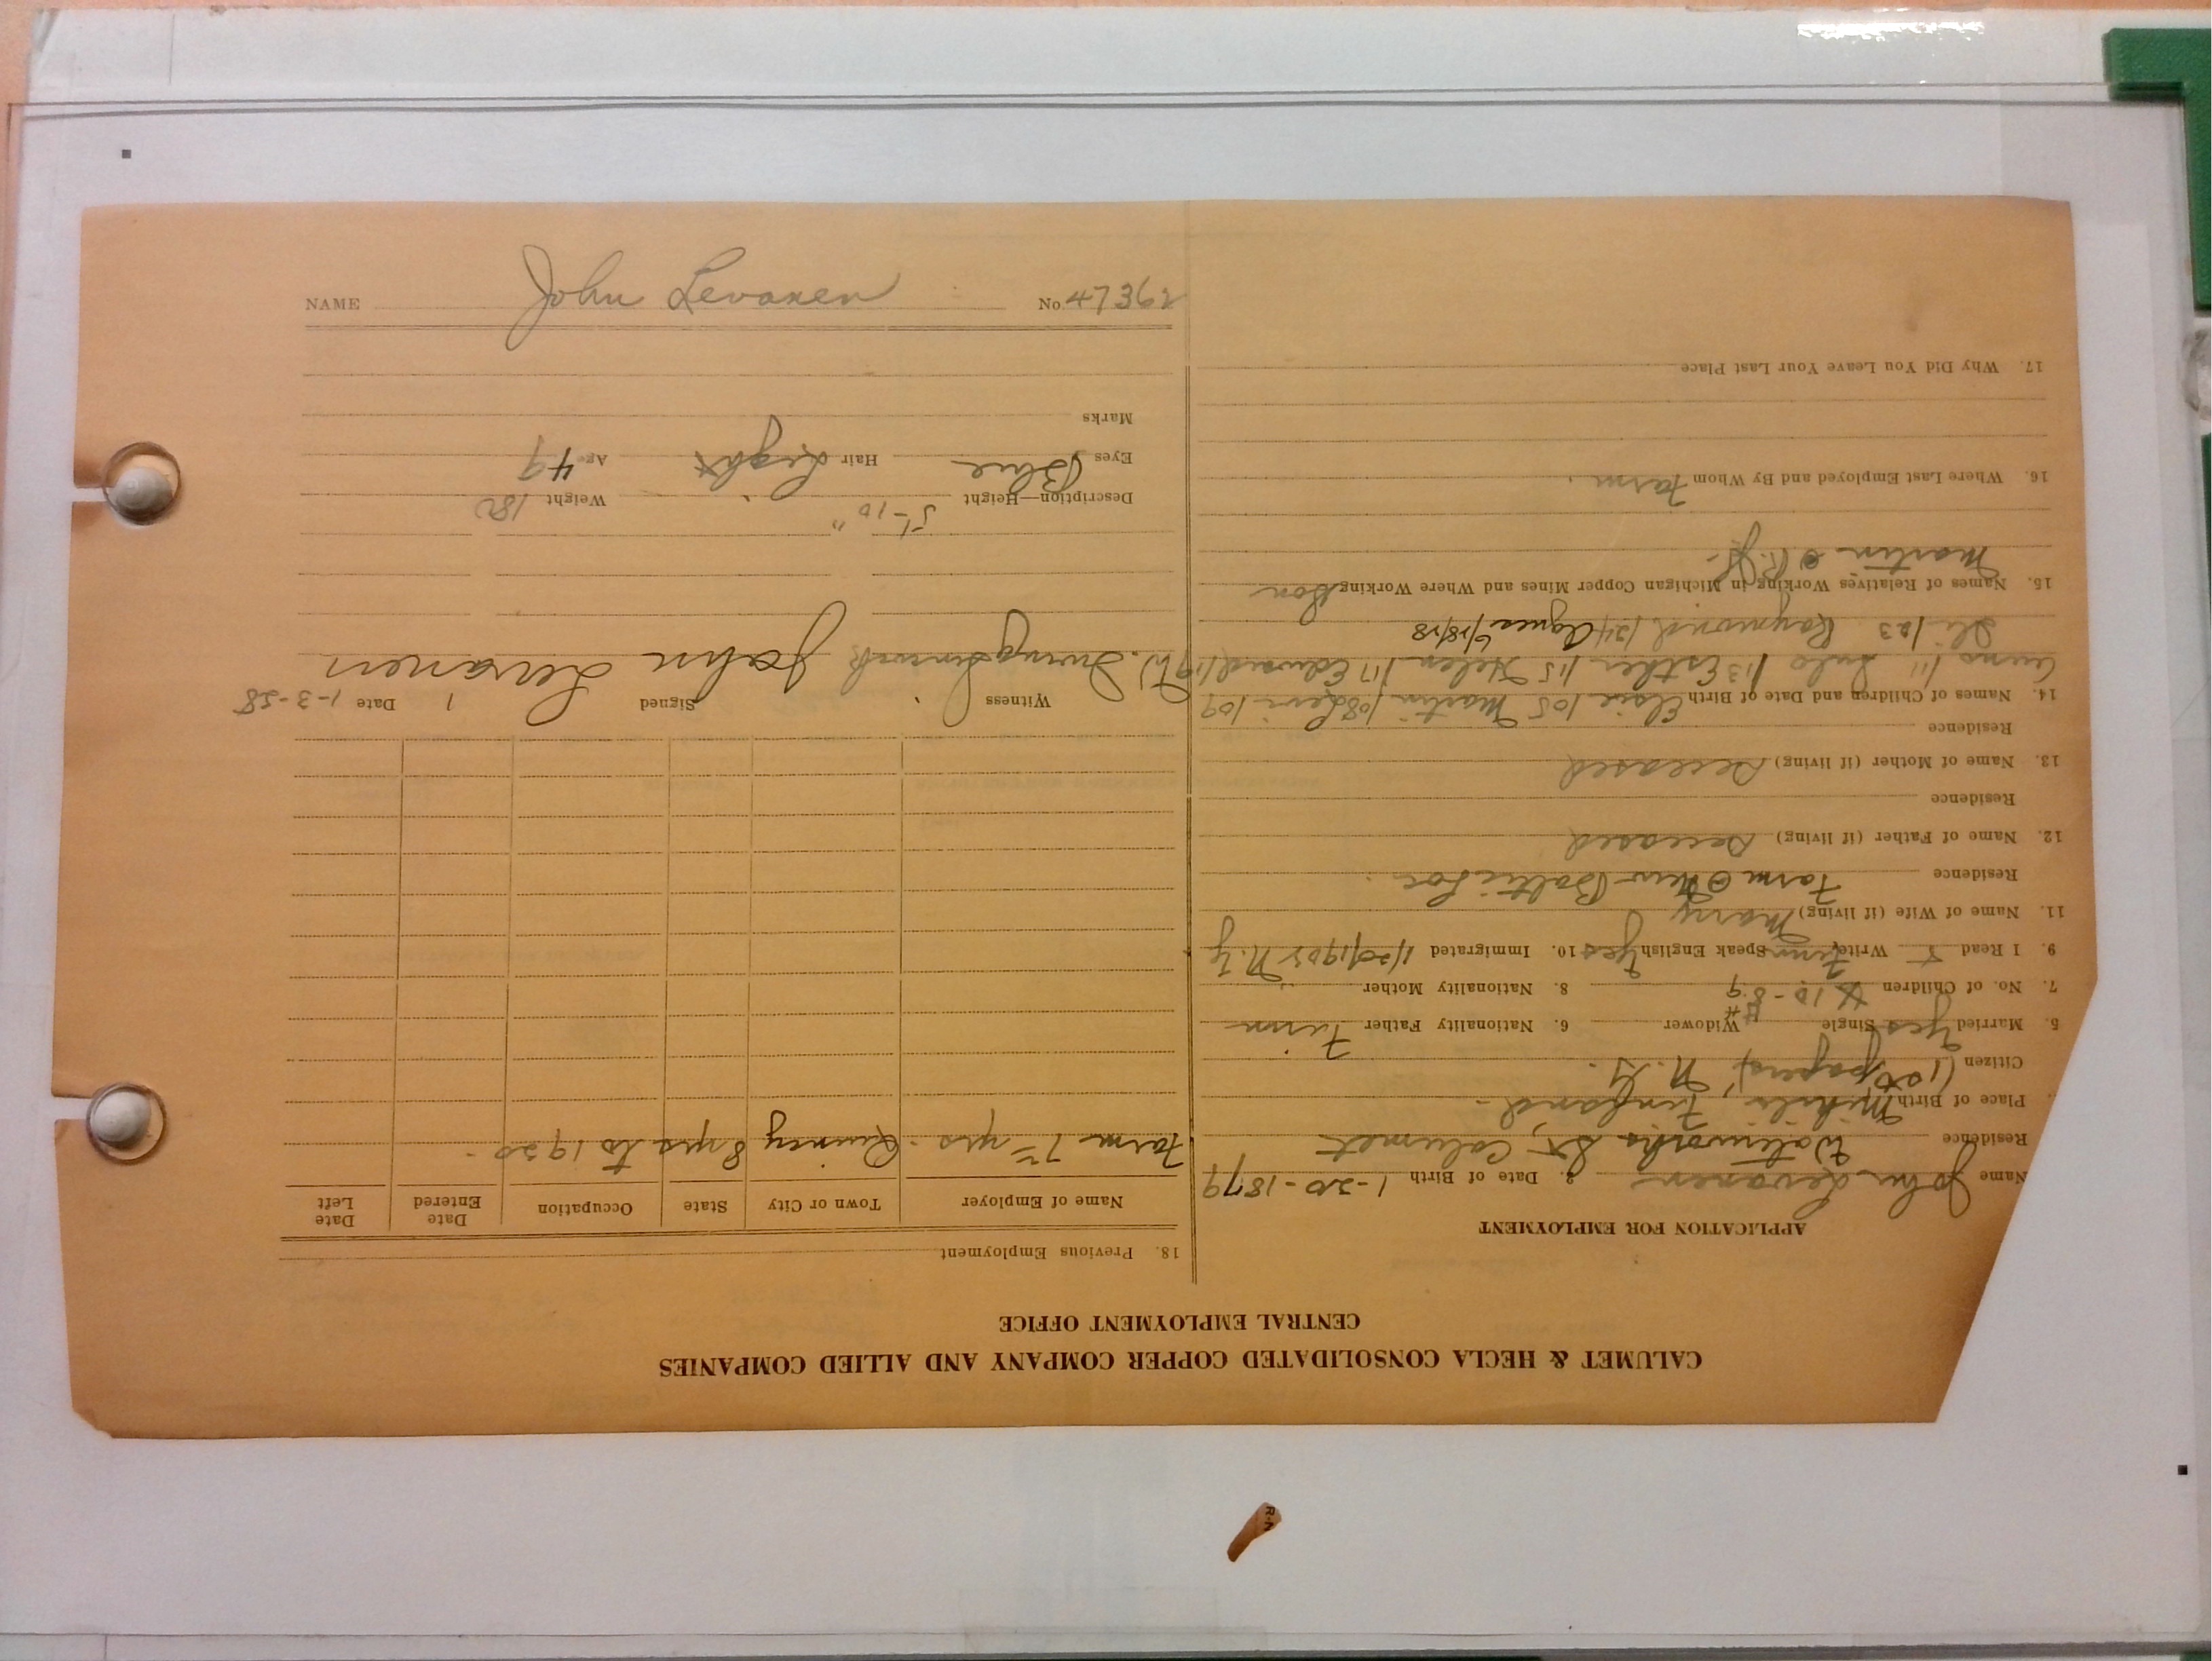 CALUMET & HECLA CONSOLIDATED COPPER COMPANY AND ALLIED COMPANIES
CENTRAL EMPLOYMENT OFFICE
APPLICATION FOR EMPLOYMENT
Name John Levanen 2. Date of Birth 1-20-1879
Residence Waterworks St, Calumet
Place of Birth Mikile, Finland
Citizen (1st papers) N.Y.
5. Married Yes Single Widower 6. Nationality Father Finn
7. No. of Children 10-8 9 8. Nationality Mother
9. I Read Write Finn Speak English Yes 10. Immigrated 1/20/1905 N.Y
11. Name of Wife (if living) Mary
Residence Farm New Baltic Loc
12. Name of Father (if living) Deceased
Residence
13. Name of Mother (if living) Deceased
Residence
14. Names of Children and Date of Birth Elsie 105 Martin 108 Levi 109
111 113 Esther 115 Helen 117 Edward 119
123 Raymond 124 Agnes 6/18/18
15. Names of Relatives Working in Michigan Copper Mines and Where Working Son
Martin
16. Where Last Employed and By Whom Farm
17. Why Did You Leave Your Last Place
18. Previous Employment
Name of Employer Town or City State Occupation Date Entered Date Left
Farm 7 yrs. Quincy 8 yrs to 1920
Witness Signed Date 1-3-28
John Levanen
Description—Height 5'-10" Weight 180
Eyes Blue Hair Light Age 49
Marks
NAME John Levanen No 47362
R-N